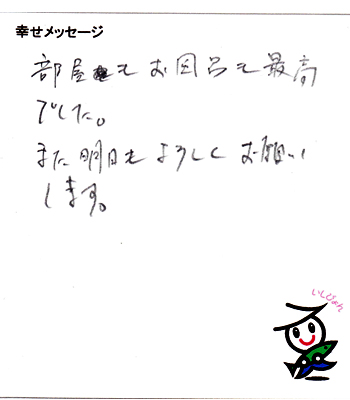 幸せメッセージ
部屋もお風呂も最高
でした。
また明日もよろしくお願い
します。
いしぴょん